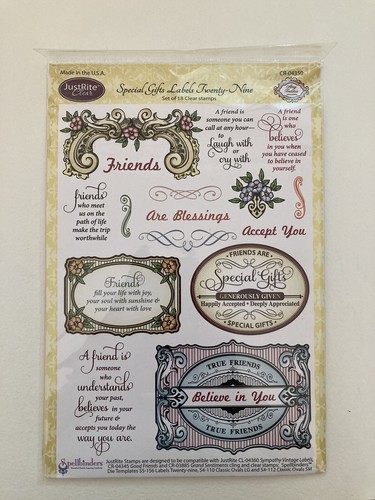 Made in the U.S.A.
CR-04350
JustRite
Clear
Special Gifts Labels Twenty-Nine
Set of 18 Clear stamps
Friends
A friend is
someone you can
call at any hour—
to
Laugh with
or
cry with
A friend
is one
who
believes
in you when
you have ceased
to believe in
yourself.
friends
who meet
us on the
path of life
make the trip
worthwhile
Are Blessings
Accept You
Friends
fill your life with joy,
your soul with sunshine &
your heart with love
• FRIENDS ARE •
Special Gifts
GENEROUSLY GIVEN
Happily Accepted • Deeply Appreciated
• SPECIAL GIFTS •
A friend is
someone
who
understands
your past,
believes in
your
future &
accepts you today
the way
you are.
TRUE FRIENDS
Believe in You
TRUE FRIENDS
Spellbinders
JustRite Stamps are designed to be compatible with JustRite CL-04360 Sympathy Vintage Labels,
CR-04345 Good Friends and CR-03885 Grand Sentiments cling and clear stamps; Spellbinders™
Die Templates S5-156 Labels Twenty-nine, S4-110 Classic Ovals LG and S4-112 Classic Ovals SM